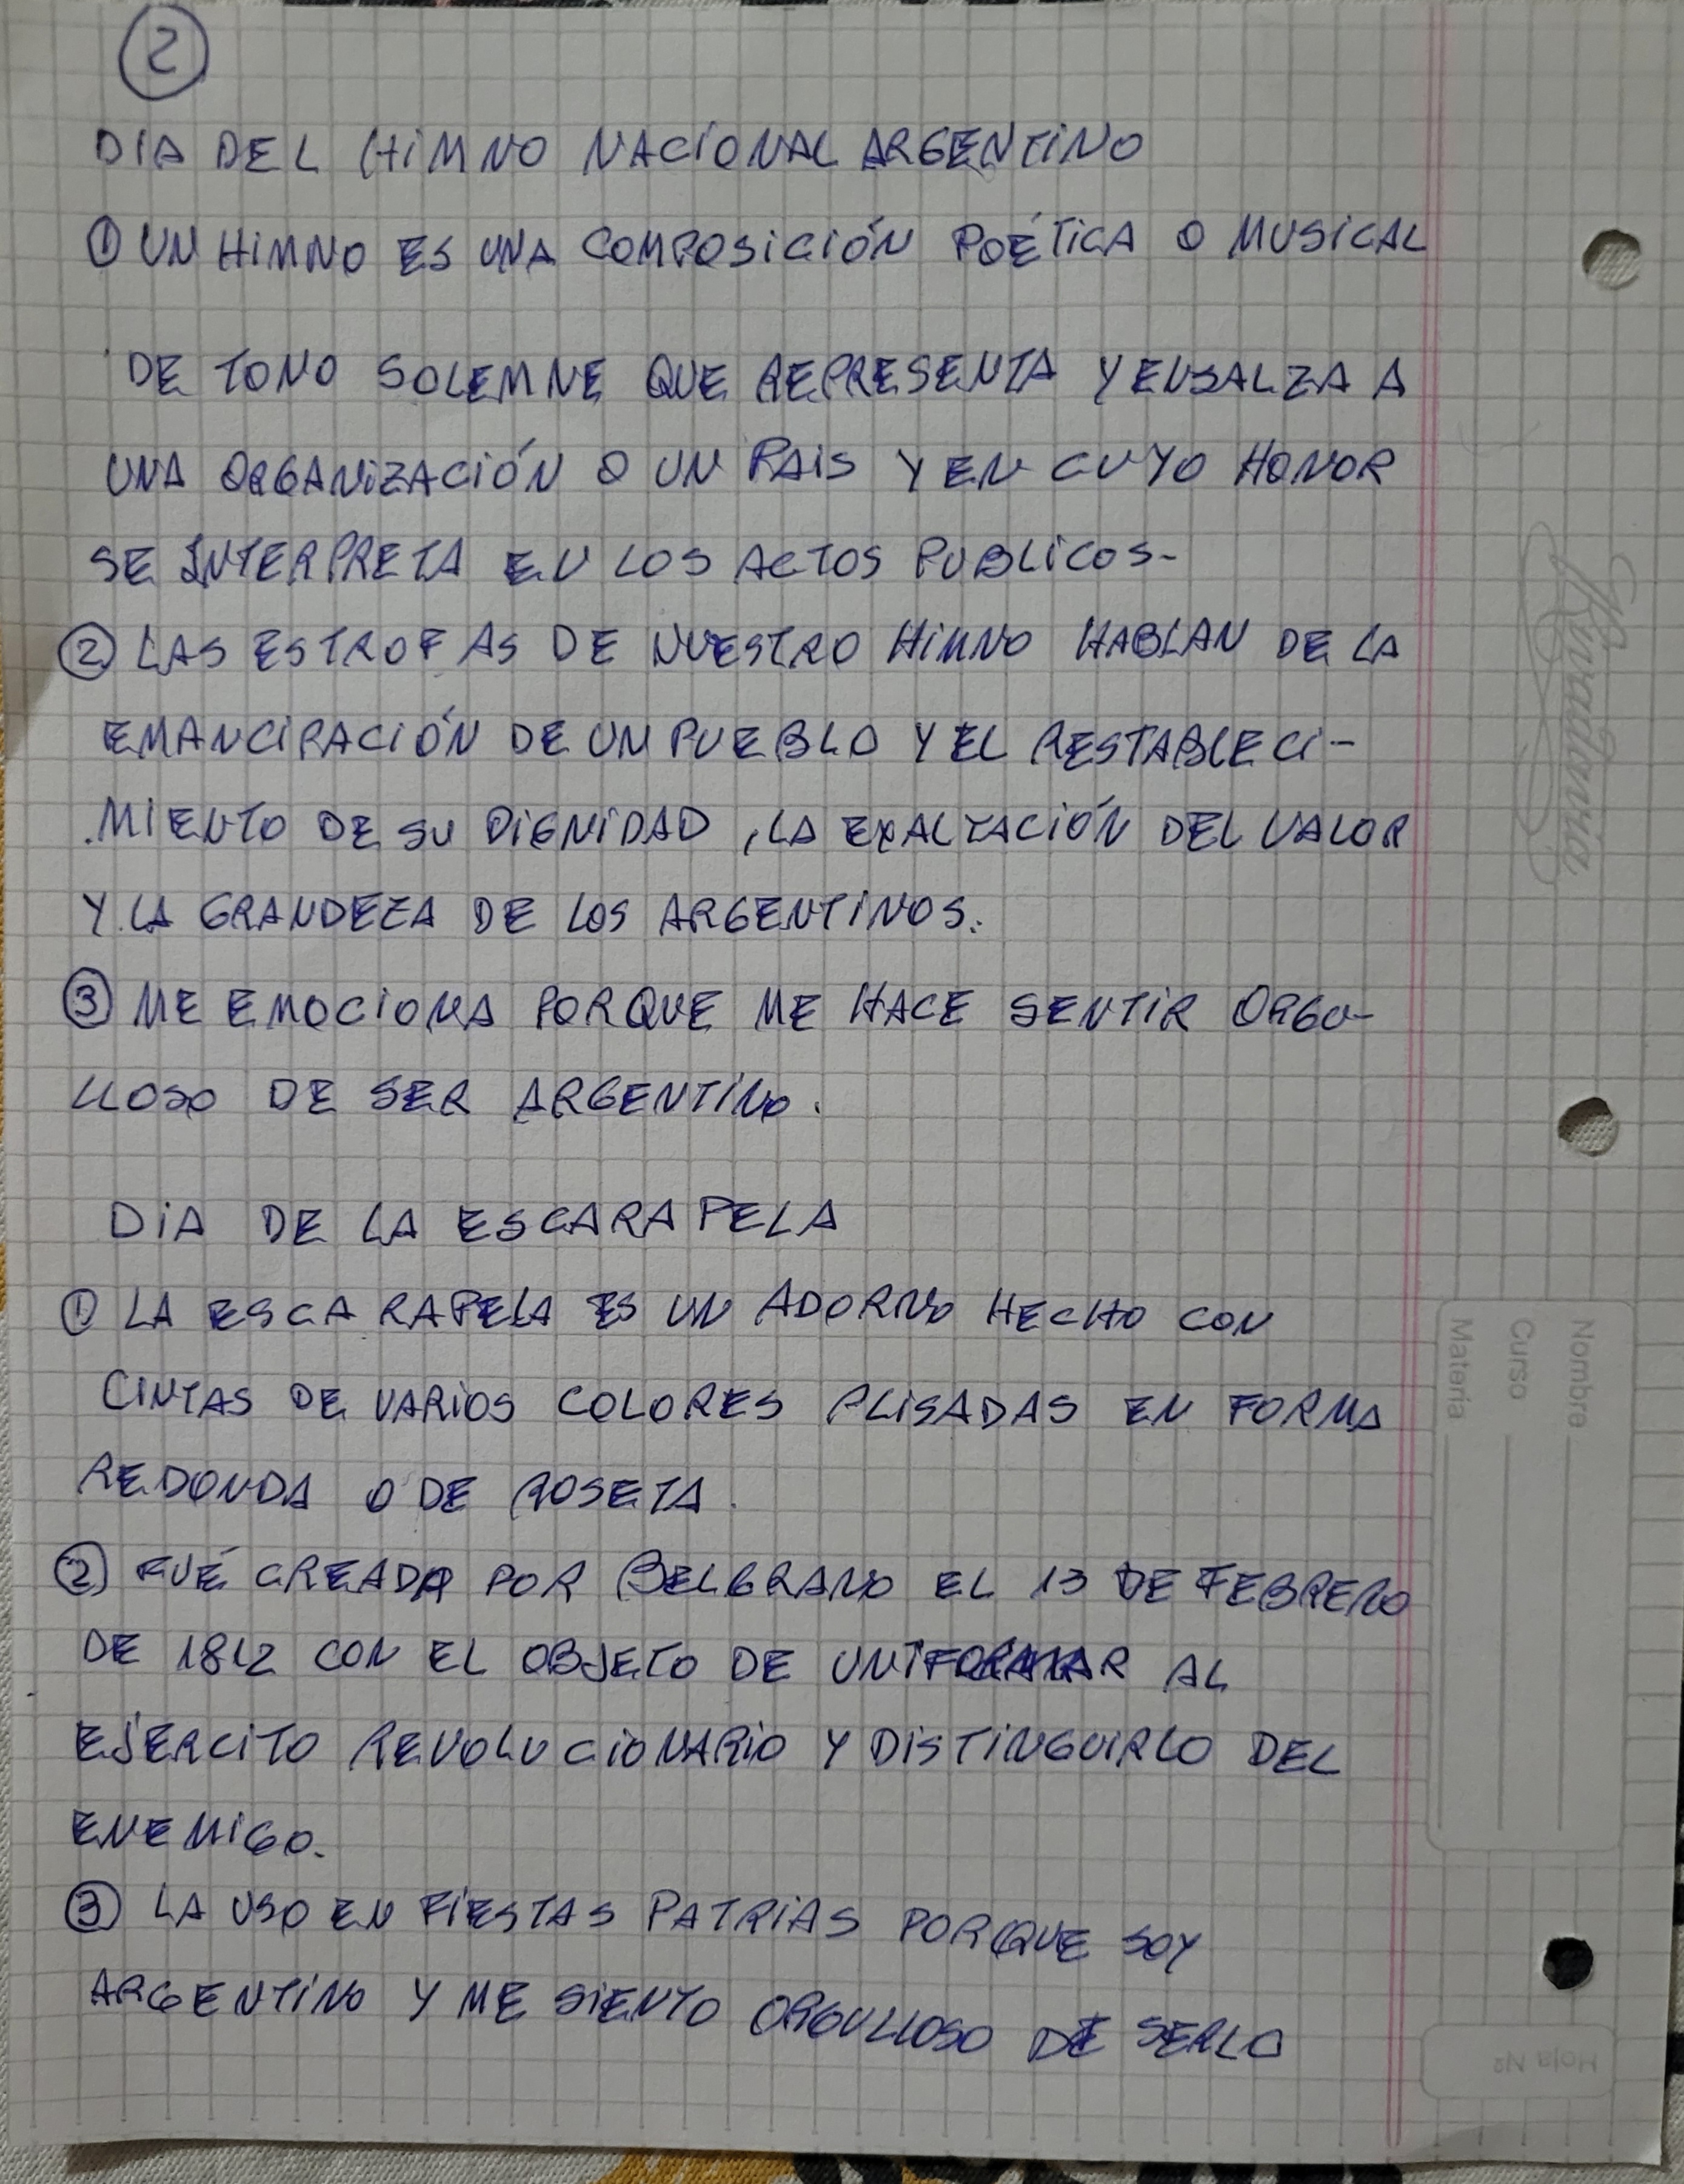 2
DIA DEL HIMNO NACIONAL ARGENTINO
① UN HIMNO ES UNA COMPOSICIÓN POÉTICA O MUSICAL
DE TONO SOLEMNE QUE REPRESENTA Y ENSALZA A
UNA ORGANIZACIÓN O UN PAIS Y EN CUYO HONOR
SE INTERPRETA EN LOS ACTOS PUBLICOS-
② LAS ESTROFAS DE NUESTRO HIMNO HABLAN DE LA
EMANCIPACIÓN DE UN PUEBLO Y EL RESTABLECI-
MIENTO DE SU DIGNIDAD, LA EXALTACIÓN DEL VALOR
Y LA GRANDEZA DE LOS ARGENTINOS.
③ ME EMOCIONA PORQUE ME HACE SENTIR ORGU-
LLOSO DE SER ARGENTINO.
DIA DE LA ESCARAPELA
① LA ESCARAPELA ES UN ADORNO HECHO CON
CINTAS DE VARIOS COLORES PLISADAS EN FORMA
REDONDA O DE ROSETA.
② FUÉ CREADA POR BELGRANO EL 13 DE FEBRERO
DE 1812 CON EL OBJETO DE UNIFORMAR AL
EJERCITO REVOLUCIONARIO Y DISTINGUIRLO DEL
ENEMIGO.
③ LA USO EN FIESTAS PATRIAS PORQUE SOY
ARGENTINO Y ME SIENTO ORGULLOSO DE SERLO
Rivadavia
Nombre
Curso
Materia
Hoja Nº